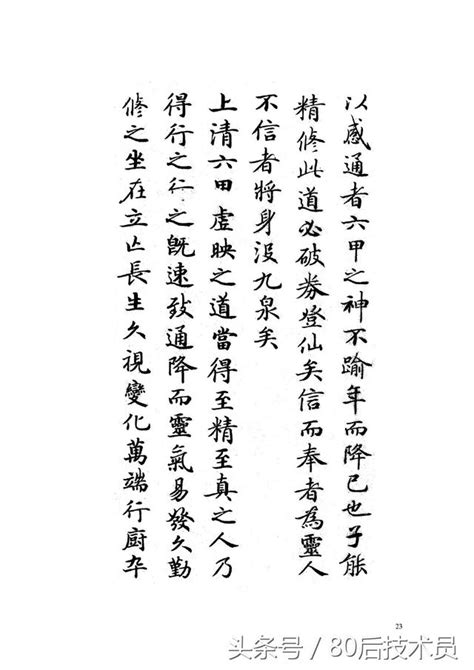 以感通者六甲之神不踰年而降已也子能
精修此道必破券登仙矣信而奉者為靈人
不信者將身没九泉矣
上清六甲虛映之道當得至精至真之人乃
得行之行之既速致通降而靈氣易發久勤
修之坐在立亡長生久視變化萬端行廚卒
23
头条号 / 80后技术员